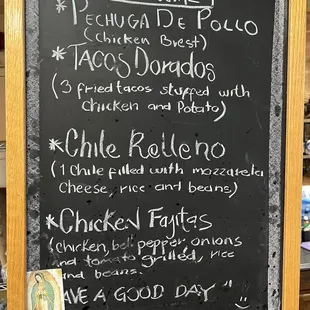 *Pechuga De Pollo
(Chicken Brest)
*Tacos Dorados
(3 fried tacos stuffed with
Chicken and Potato)
*Chile Relleno
(1 Chile filled with mozzarela
cheese, rice and beans)
*Chicken Fajitas
(chicken, bell pepper onions
and tomato grilled, rice
and beans.
HAVE A GOOD DAY"